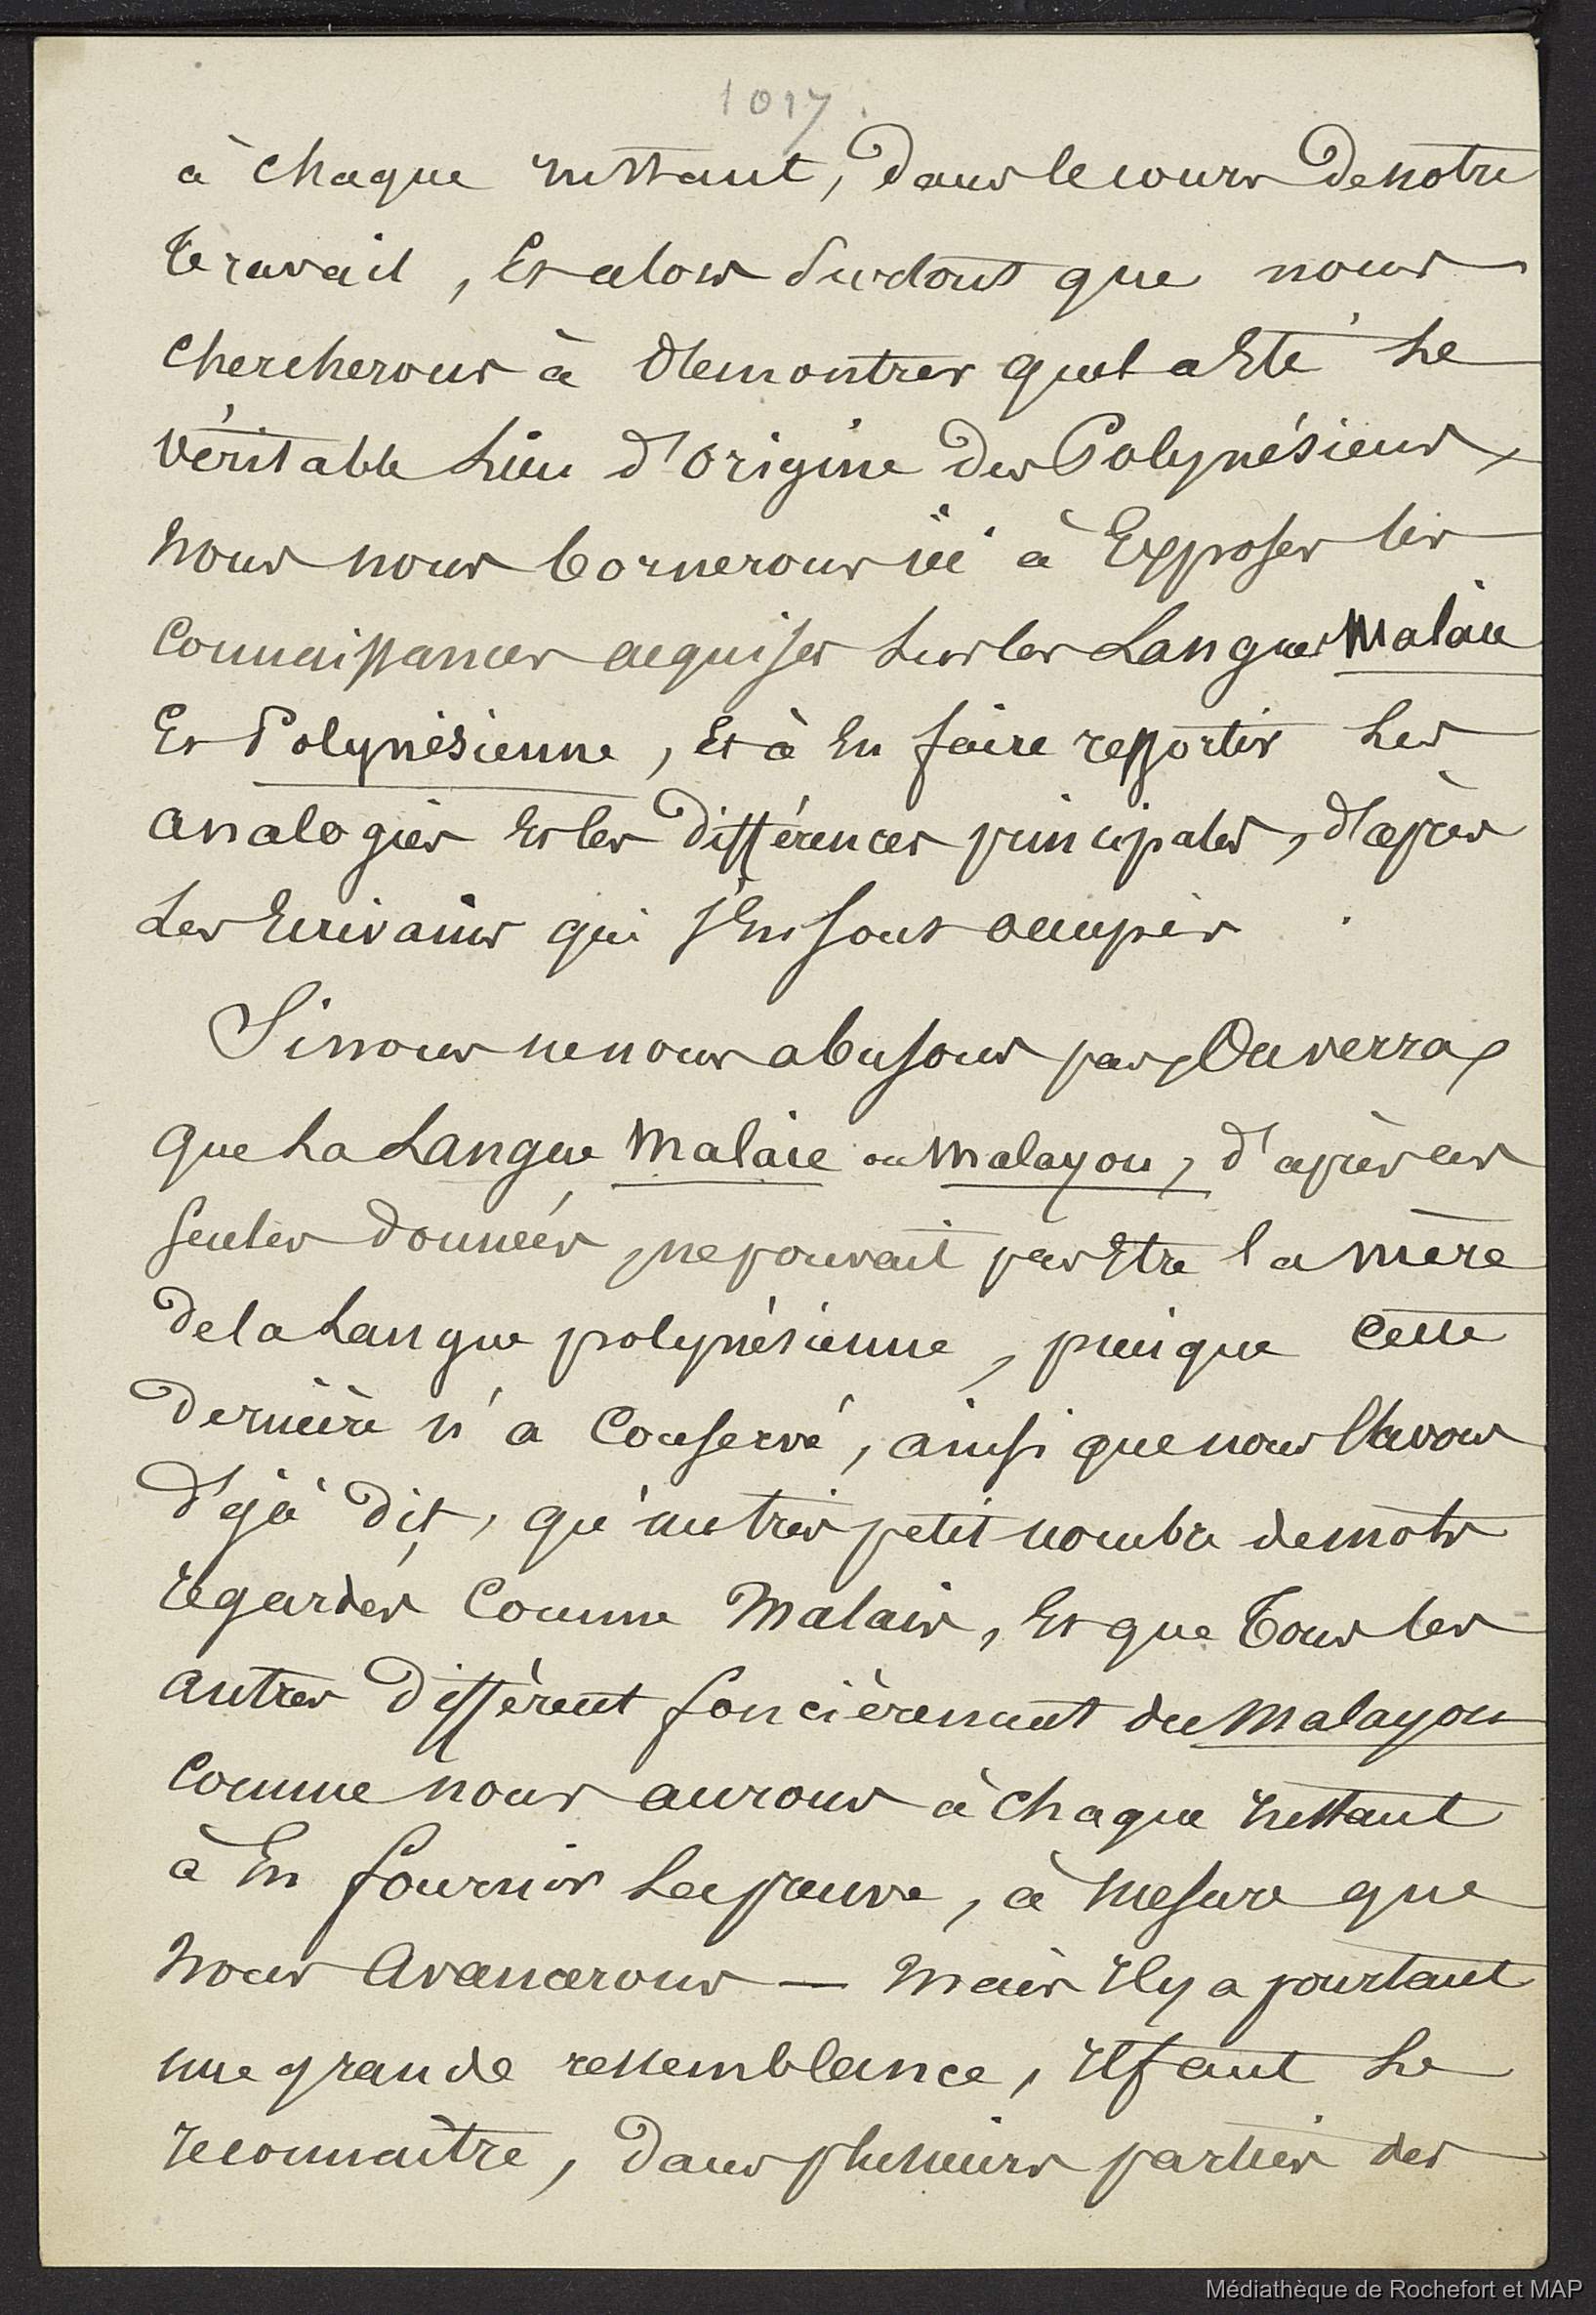 1017.
à chaque instant, dans le cours de notre
travail, et alors surtout que nous
chercherons à démontrer quel a été le
véritable lieu d'origine des Polynésiens,
nous nous bornerons ici à exposer les
connaissances acquises sur les langues malaie
et Polynésienne, et à en faire ressortir les
analogies et les différences principales, d'après
les écrivains qui s'en sont occupés.
Si nous ne nous abusons pas, on verra
que la langue malaie ou malayou, d'après ces
seules données, ne pouvait pas être la mère
de la langue polynésienne, puisque cette
dernière n'a conservé, ainsi que nous l'avons
déjà dit, qu'un très petit nombre de mots
regardés comme malais, et que tous les
autres diffèrent foncièrement du malayou
comme nous aurons à chaque instant
à en fournir la preuve, à mesure que
nous avancerons — mais il y a pourtant
une grande ressemblance, il faut le
reconnaître, dans plusieurs parties des
Médiathèque de Rochefort et MAP